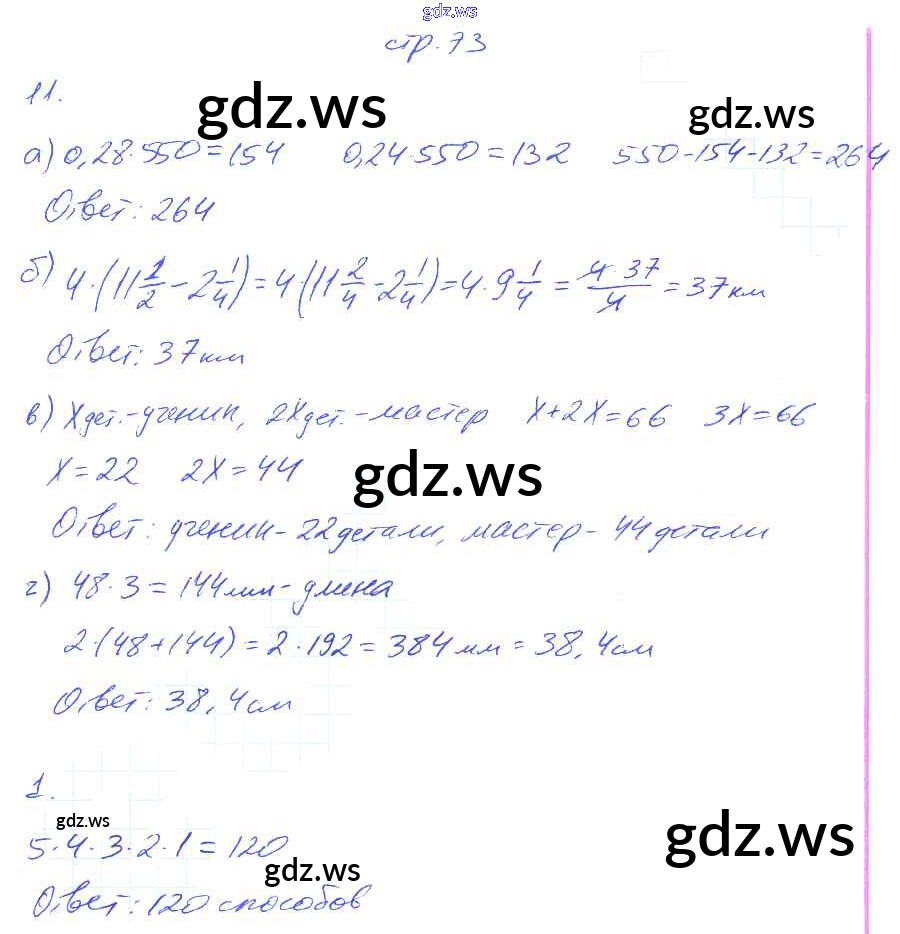 gdz.ws
стр. 73
11.
gdz.ws
gdz.ws
а) 0,28·550=154 0,24·550=132 550-154-132=264
Ответ: 264
б) 4·(11 1/2 - 2 1/4)=4(11 2/4 - 2 1/4)=4·9 1/4 = 4·37/4 = 37км
Ответ: 37км
в) Xдет.-ученик, 2Xдет.-мастер X+2X=66 3X=66
X=22 2X=44
gdz.ws
Ответ: ученик-22детали, мастер-44детали
г) 48·3=144мм-длина
2·(48+144)=2·192=384мм=38,4см
Ответ: 38,4см
1.
gdz.ws
gdz.ws
5·4·3·2·1=120
gdz.ws
Ответ: 120 способов